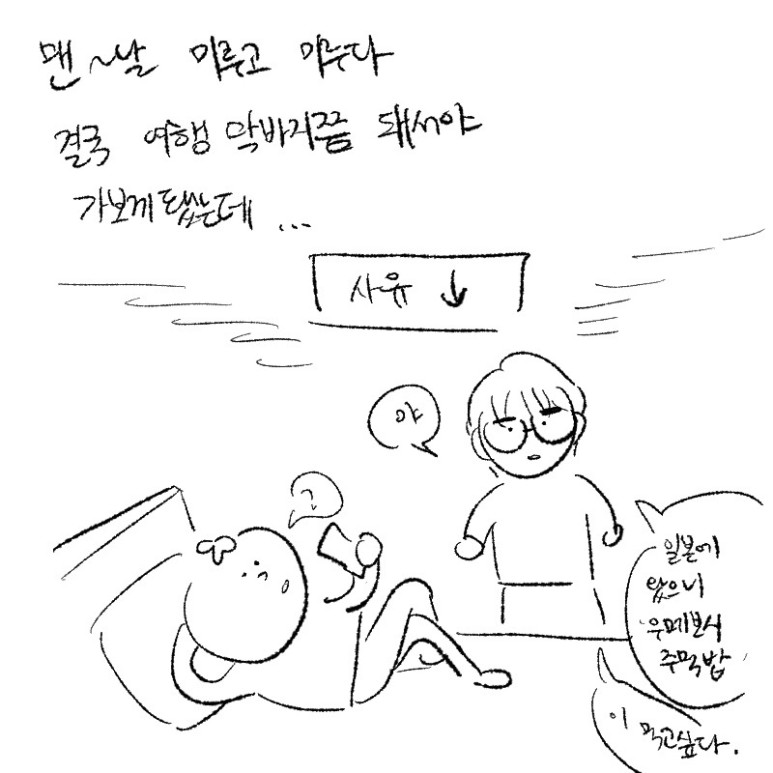 맨~날 미루고 미루다
결국 여행 막바지쯤 돼서야
가보게 됐는데 ...
사유 ↓
야
?
일본에
왔으니
우메보시
주먹밥
이 먹고싶다.